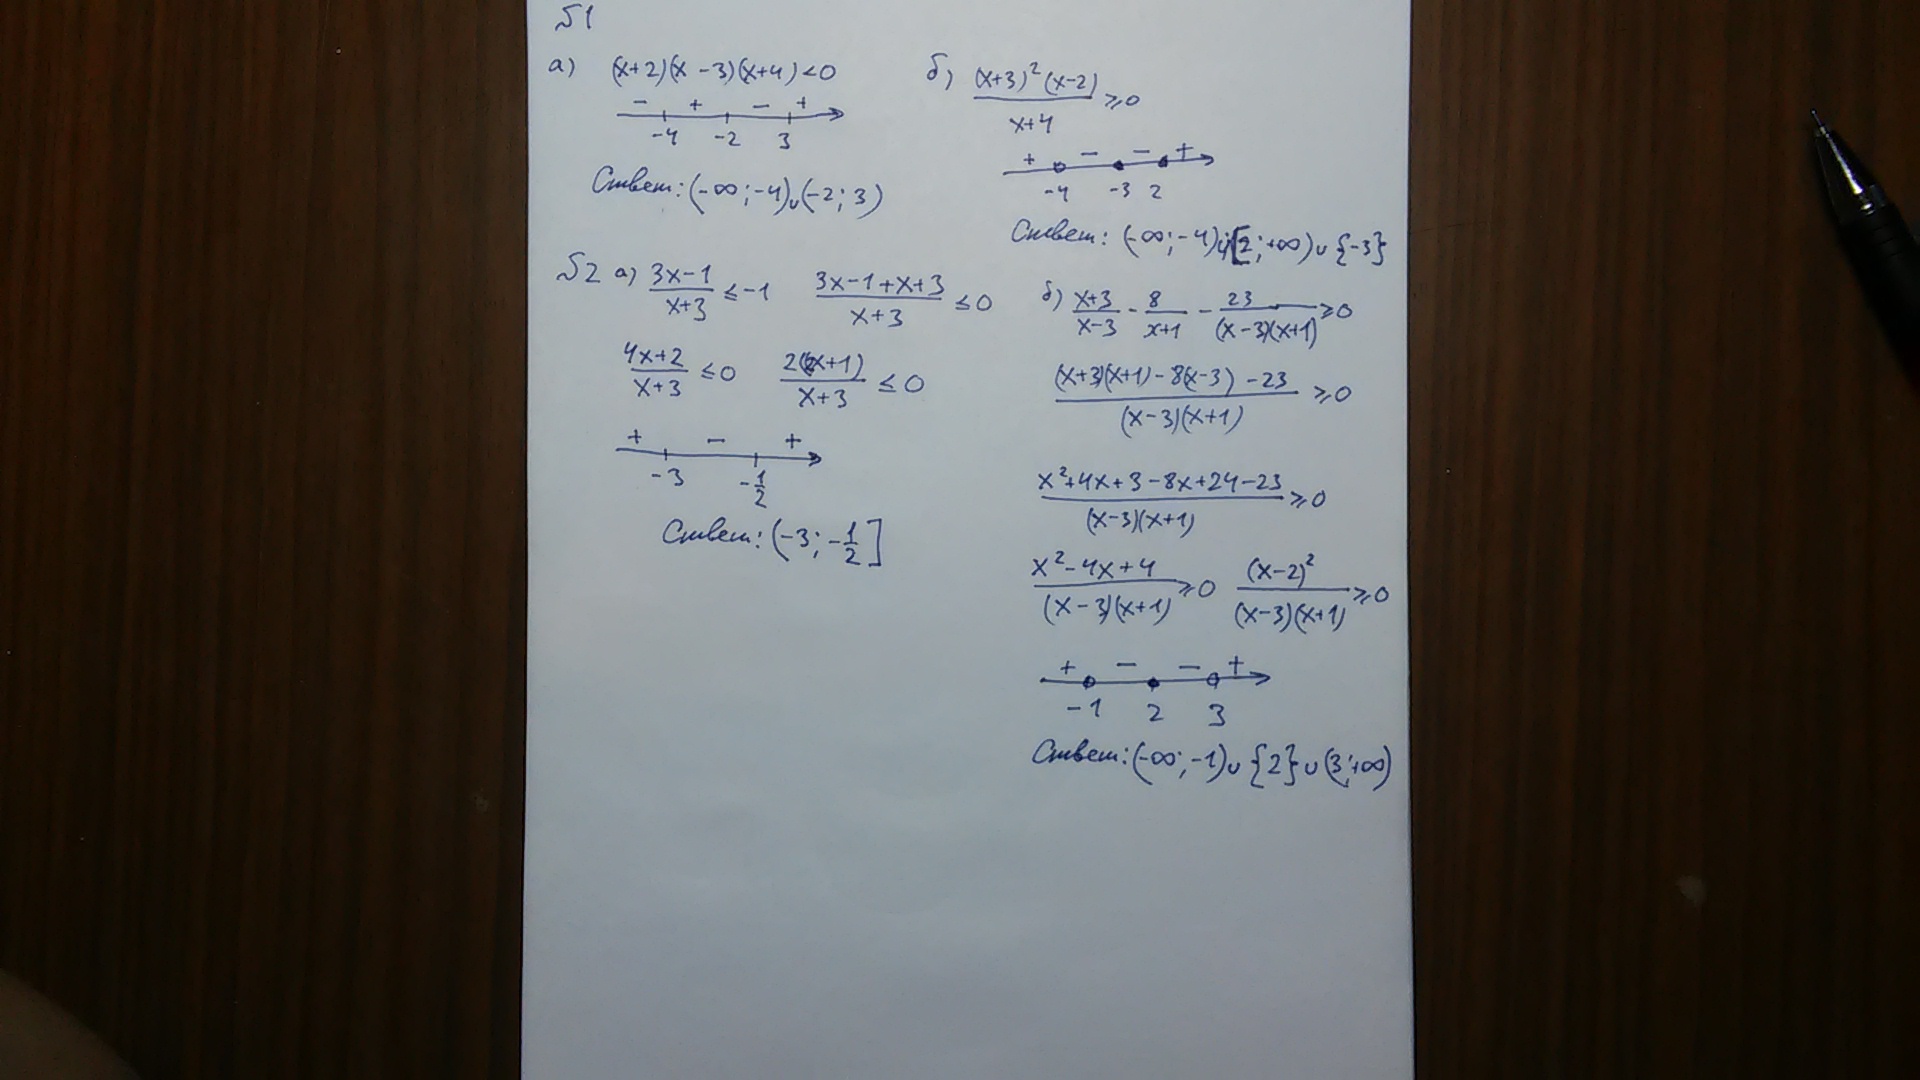 №1
а) (x+2)(x-3)(x+4)<0
- + - +
-4 -2 3
Ответ: (-∞; -4)∪(-2; 3)
б) (x+3)²(x-2)
x+4
≥0
+ - - +
-4 -3 2
Ответ: (-∞; -4)∪[2; +∞)∪{-3}
№2 а) 3x-1
x+3
≤-1
3x-1+x+3
x+3
≤0
4x+2
x+3
≤0
2(2x+1)
x+3
≤0
+ - +
-3 -1/2
Ответ: (-3; -1/2]
б) x+3
x-3
- 8
x+1
- 23
(x-3)(x+1)
≥0
(x+3)(x+1)-8(x-3)-23
(x-3)(x+1)
≥0
x²+4x+3-8x+24-23
(x-3)(x+1)
≥0
x²-4x+4
(x-3)(x+1)
≥0
(x-2)²
(x-3)(x+1)
≥0
+ - - +
-1 2 3
Ответ: (-∞; -1)∪{2}∪(3; +∞)